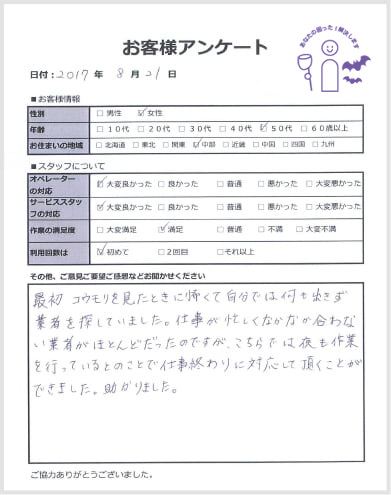 お客様アンケート
あなたの困った!解決します
日付:2017年 8月21日
■お客様情報
性別 □男性 ☑女性
年齢 □10代 □20代 □30代 □40代 ☑50代 □60歳以上
お住まいの地域 □北海道 □東北 □関東 ☑中部 □近畿 □中国 □四国 □九州
■スタッフについて
オペレーターの対応 ☑大変良かった □良かった □普通 □悪かった □大変悪かった
サービススタッフの対応 ☑大変良かった □良かった □普通 □悪かった □大変悪かった
作業の満足度 □大変満足 ☑満足 □普通 □不満 □大変不満
利用回数は ☑初めて □2回目 □それ以上
その他、ご意見ご要望ご感想などお聞かせください
最初 コウモリを見たときに怖くて自分では何も出来ず
業者を探していました。仕事が忙しくなかなか合わな
い業者がほとんどだったのですが、こちらでは夜も作業
を行っているとのことで仕事終わりに対応して頂くことが
できました。助かりました。
ご協力ありがとうございました。